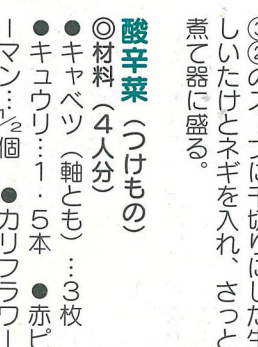 ③②のスープに千切りにした生
しいたけとネギを入れ、さっと
煮て器に盛る。
酸辛菜（つけもの）
◎材料（４人分）
●キャベツ（軸とも）…３枚
●キュウリ…１・５本　●赤ピ
ーマン…½個　●カリフラワー